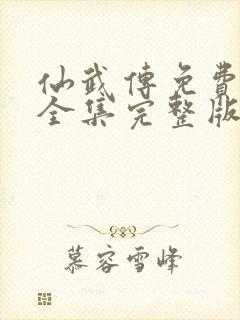 仙武传免費
全集完整版
慕容雪峰